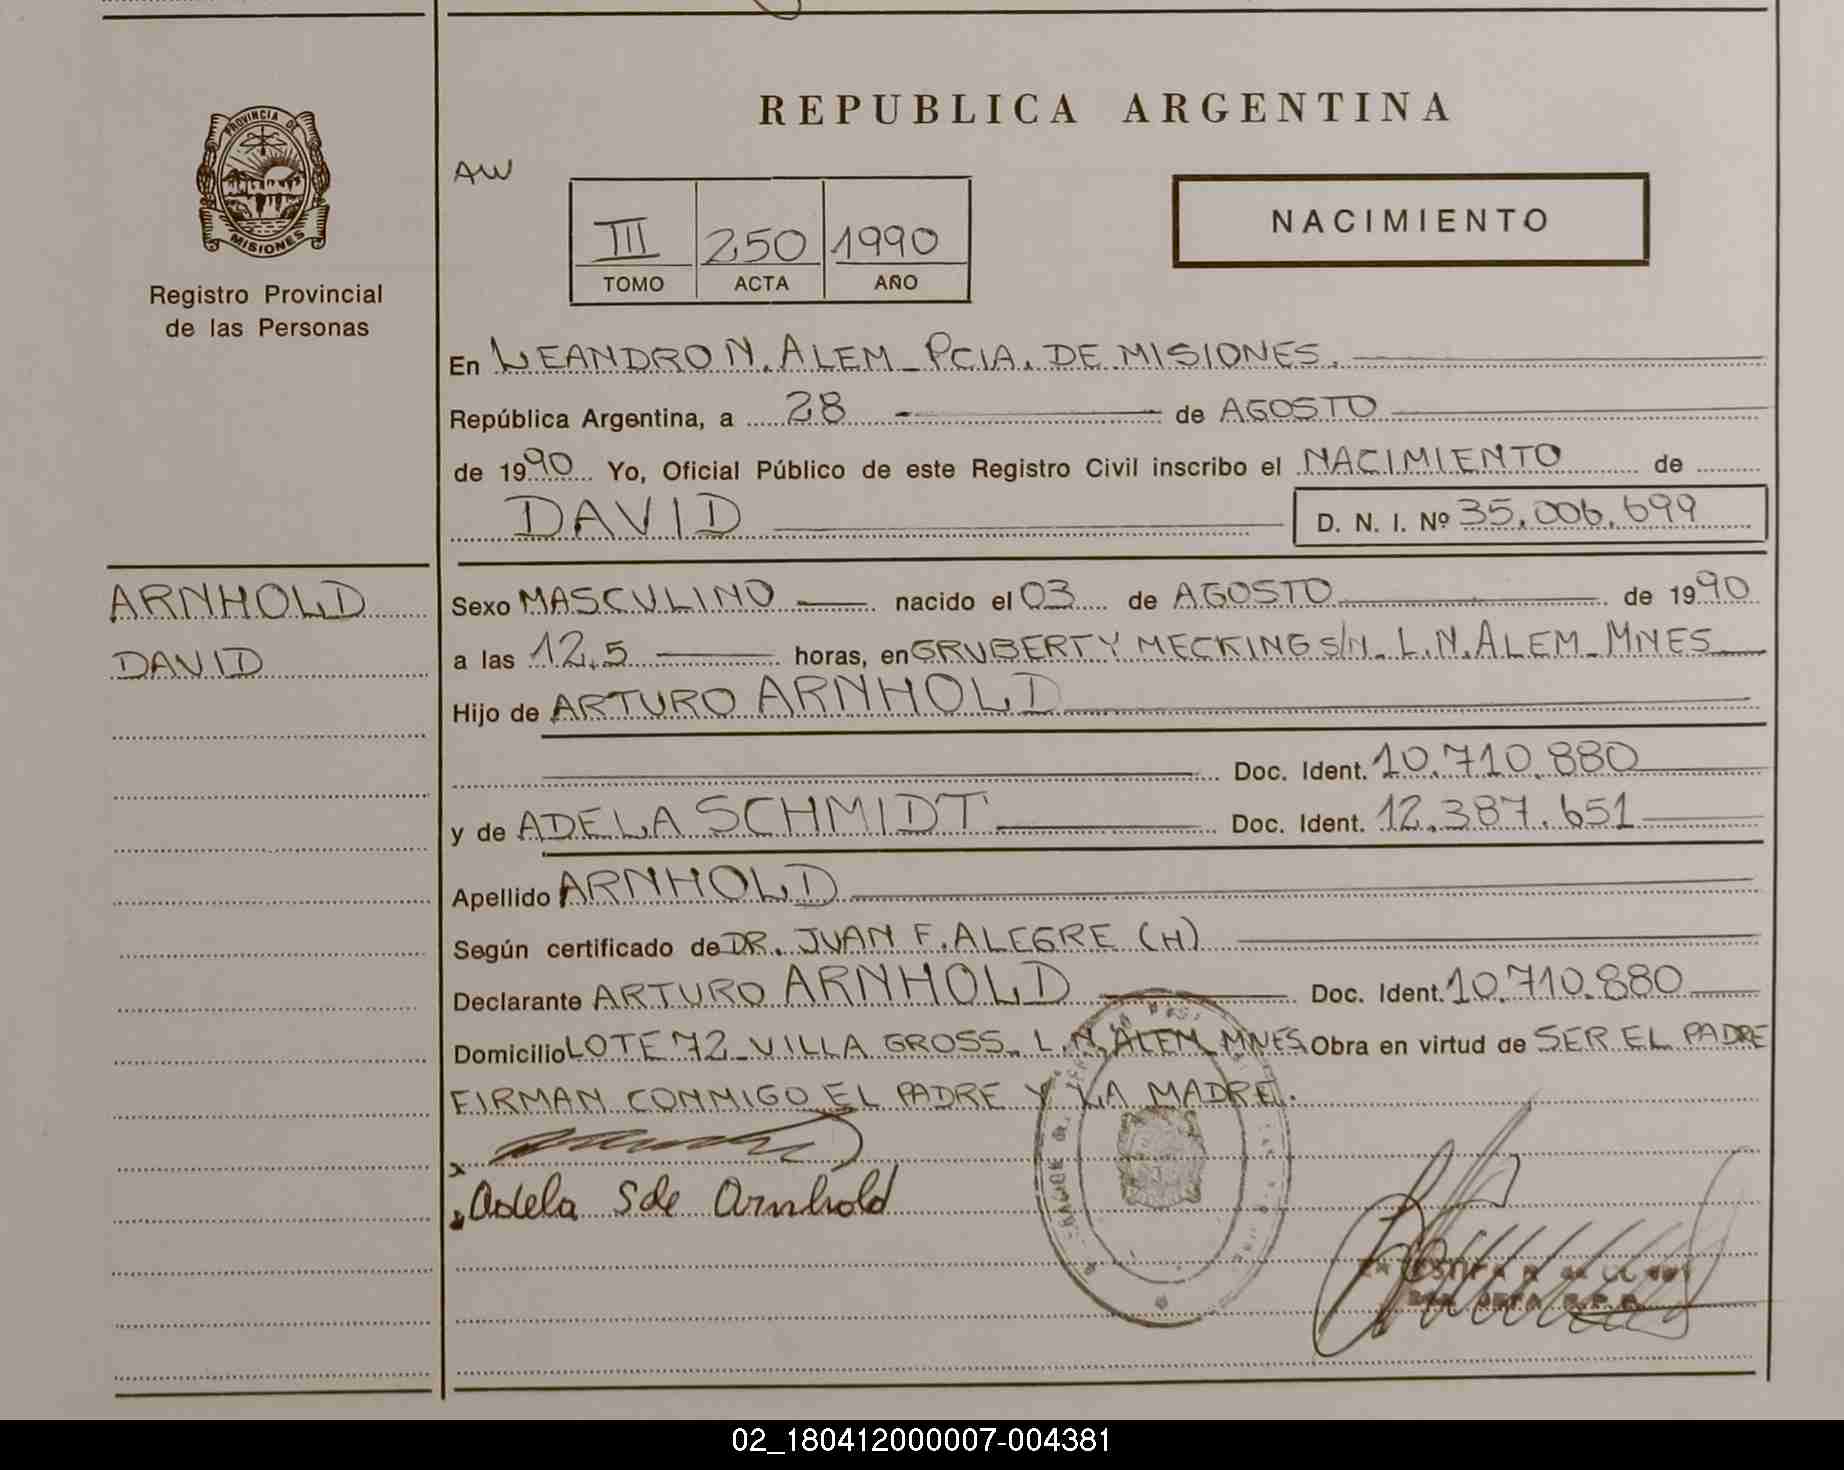 REPUBLICA ARGENTINA
PROVINCIA DE
MISIONES
AW
III 250 1990
TOMO ACTA AÑO
NACIMIENTO
Registro Provincial
de las Personas
En LEANDRO N. ALEM _ PCIA. DE MISIONES.
República Argentina, a 28 de AGOSTO
de 1990 Yo, Oficial Público de este Registro Civil inscribo el NACIMIENTO de
DAVID D. N. I. Nº 35.006.699
ARNHOLD
DAVID
Sexo MASCULINO nacido el 03 de AGOSTO de 1990
a las 12,5 horas, en GRUBERT Y MECKING S/N_ L.N.ALEM_MNES
Hijo de ARTURO ARNHOLD
Doc. Ident. 10.710.880
y de ADELA SCHMIDT Doc. Ident. 12.387.651
Apellido ARNHOLD
Según certificado de DR. JUAN F. ALEGRE (H)
Declarante ARTURO ARNHOLD Doc. Ident. 10.710.880
Domicilio LOTE 72_VILLA GROSS_ L.N.ALEM_MNES Obra en virtud de SER EL PADRE
FIRMAN CONMIGO EL PADRE Y LA MADRE.
Adela S de Arnhold
02_180412000007-004381